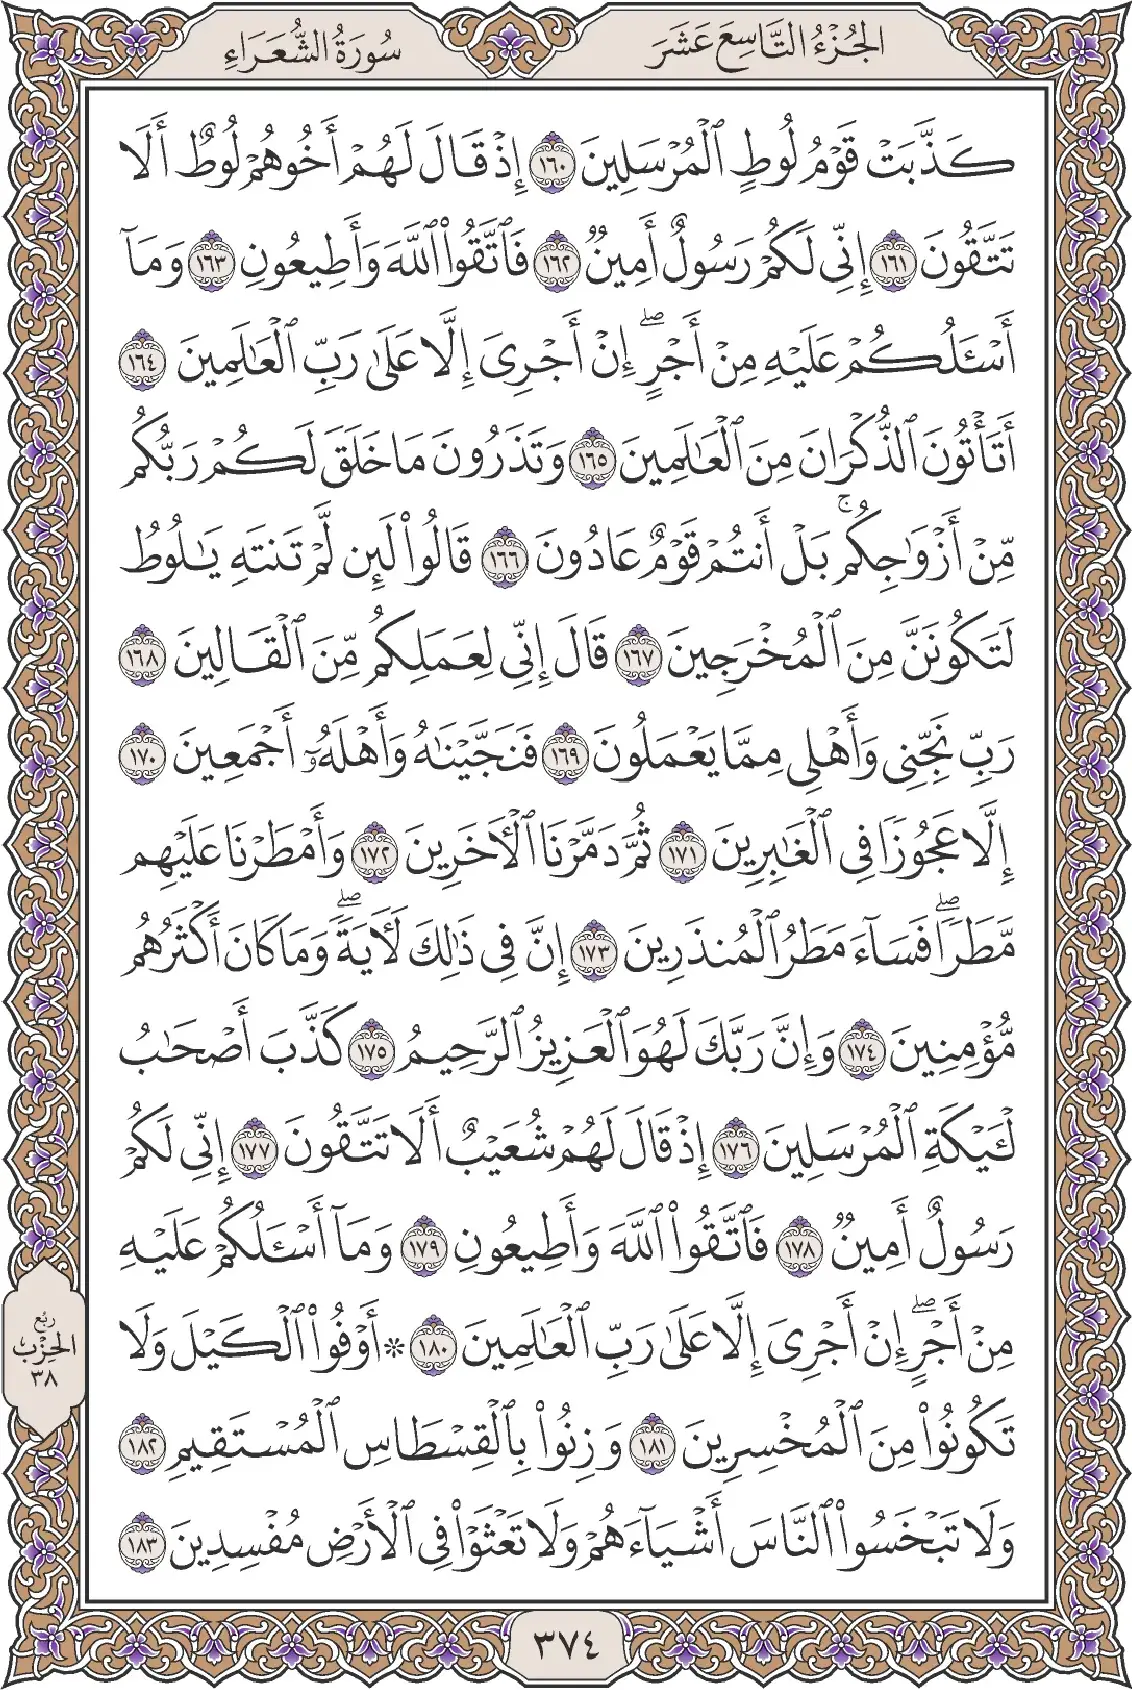 الجُزْءُ التَّاسِعَ عَشَرَ
سُورَةُ الشُّعَرَاءِ
كَذَّبَتْ قَوْمُ لُوطٍ ٱلْمُرْسَلِينَ ١٦٠ إِذْ قَالَ لَهُمْ أَخُوهُمْ لُوطٌ أَلَا
تَتَّقُونَ ١٦١ إِنِّى لَكُمْ رَسُولٌ أَمِينٌ ١٦٢ فَٱتَّقُوا۟ ٱللَّهَ وَأَطِيعُونِ ١٦٣ وَمَآ
أَسْـَٔلُكُمْ عَلَيْهِ مِنْ أَجْرٍ ۖ إِنْ أَجْرِىَ إِلَّا عَلَىٰ رَبِّ ٱلْعَـٰلَمِينَ ١٦٤
أَتَأْتُونَ ٱلذُّكْرَانَ مِنَ ٱلْعَـٰلَمِينَ ١٦٥ وَتَذَرُونَ مَا خَلَقَ لَكُمْ رَبُّكُم
مِّنْ أَزْوَٰجِكُم ۚ بَلْ أَنتُمْ قَوْمٌ عَادُونَ ١٦٦ قَالُوا۟ لَئِن لَّمْ تَنتَهِ يَـٰلُوطُ
لَتَكُونَنَّ مِنَ ٱلْمُخْرَجِينَ ١٦٧ قَالَ إِنِّى لِعَمَلِكُم مِّنَ ٱلْقَالِينَ ١٦٨
رَبِّ نَجِّنِى وَأَهْلِى مِمَّا يَعْمَلُونَ ١٦٩ فَنَجَّيْنَـٰهُ وَأَهْلَهُۥٓ أَجْمَعِينَ ١٧٠
إِلَّا عَجُوزًا فِى ٱلْغَـٰبِرِينَ ١٧١ ثُمَّ دَمَّرْنَا ٱلْـَٔاخَرِينَ ١٧٢ وَأَمْطَرْنَا عَلَيْهِم
مَّطَرًا ۖ فَسَآءَ مَطَرُ ٱلْمُنذَرِينَ ١٧٣ إِنَّ فِى ذَٰلِكَ لَـَٔايَةً ۖ وَمَا كَانَ أَكْثَرُهُم
مُّؤْمِنِينَ ١٧٤ وَإِنَّ رَبَّكَ لَهُوَ ٱلْعَزِيزُ ٱلرَّحِيمُ ١٧٥ كَذَّبَ أَصْحَـٰبُ
لْـَٔيْكَةِ ٱلْمُرْسَلِينَ ١٧٦ إِذْ قَالَ لَهُمْ شُعَيْبٌ أَلَا تَتَّقُونَ ١٧٧ إِنِّى لَكُمْ
رَسُولٌ أَمِينٌ ١٧٨ فَٱتَّقُوا۟ ٱللَّهَ وَأَطِيعُونِ ١٧٩ وَمَآ أَسْـَٔلُكُمْ عَلَيْهِ
مِنْ أَجْرٍ ۖ إِنْ أَجْرِىَ إِلَّا عَلَىٰ رَبِّ ٱلْعَـٰلَمِينَ ١٨٠ * أَوْفُوا۟ ٱلْكَيْلَ وَلَا
تَكُونُوا۟ مِنَ ٱلْمُخْسِرِينَ ١٨١ وَزِنُوا۟ بِٱلْقِسْطَاسِ ٱلْمُسْتَقِيمِ ١٨٢
وَلَا تَبْخَسُوا۟ ٱلنَّاسَ أَشْيَآءَهُمْ وَلَا تَعْثَوْا۟ فِى ٱلْأَرْضِ مُفْسِدِينَ ١٨٣
رُبُع
الحِزْب
٣٨
٣٧٤